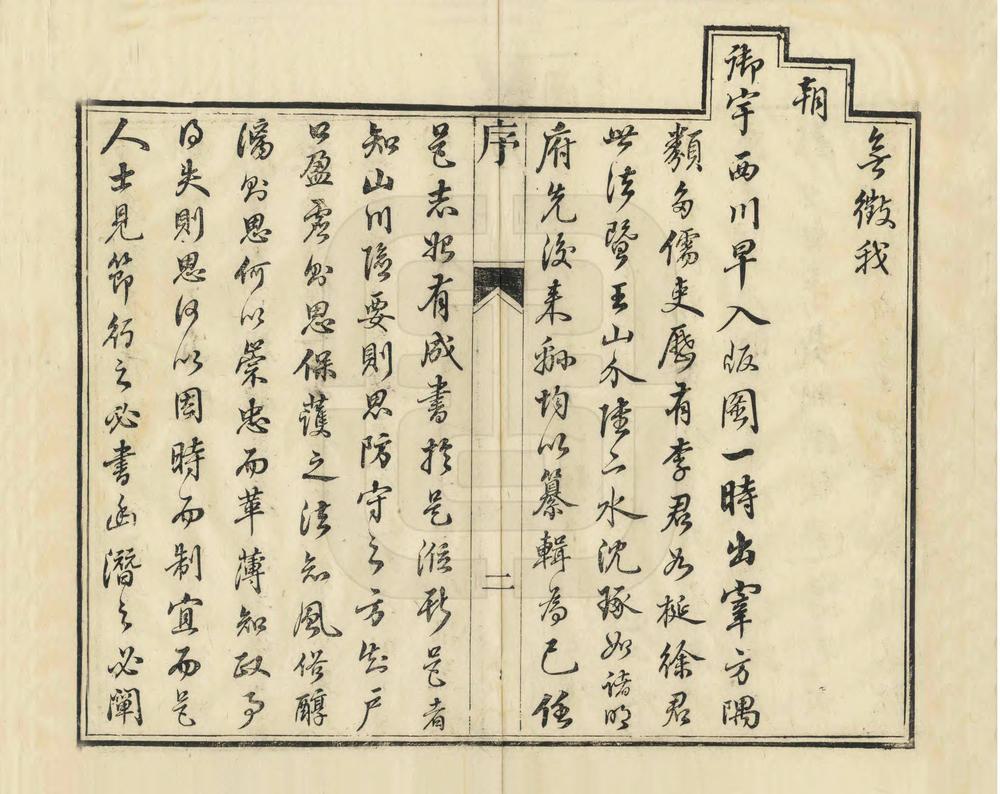 無徵我
朝
御宇西川早入版圖一時出宰方隅
類多儒吏歷有李君如梃徐君
世法暨王山介陸二水沈琢如諸明
府先後來縣均以纂輯為己任
序
二
是志始有成書於是涖斯邑者
知山川險要則思防守之方知戶
口盈虛則思保護之法知風俗醇
漓則思何以崇忠而革薄知政事
得失則思何以因時而制宜而邑
人士見節行之必書幽潛之必闡